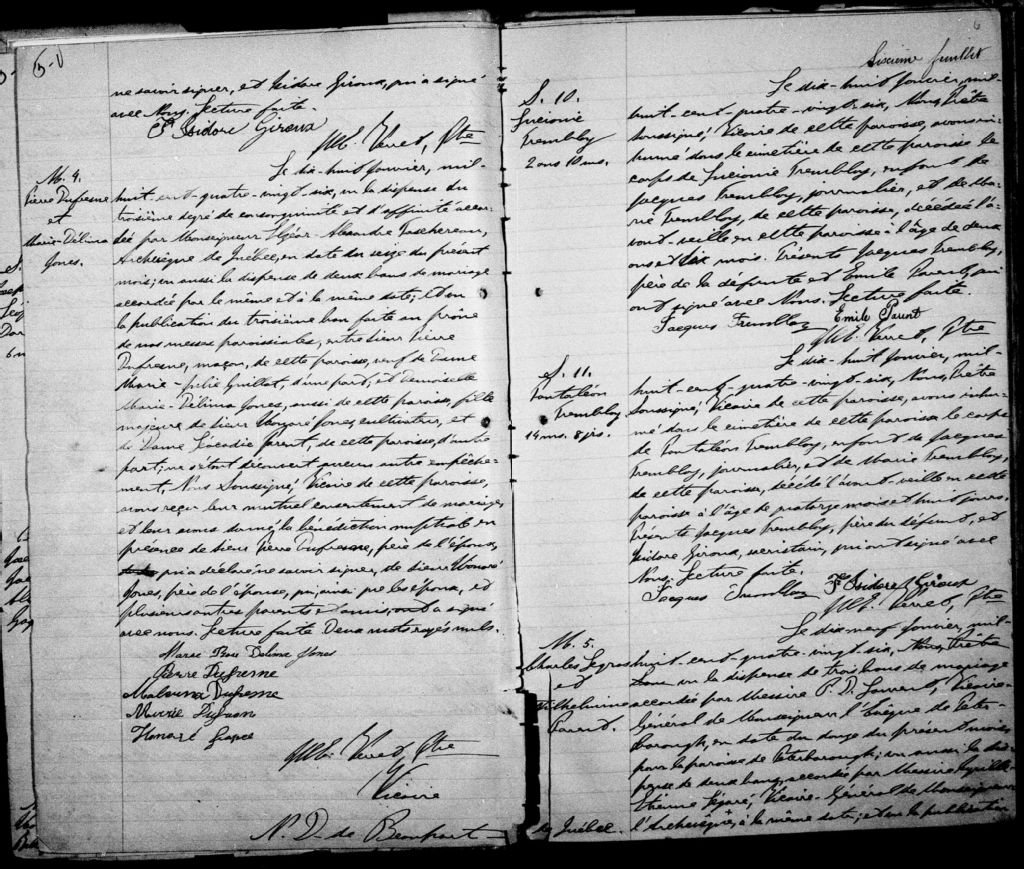 5-V
ne savoir signer, et Isidore Giroux, qui a signé
avec Nous. Lecture faite.
Fs Isidore Giroux
Ptre
M. 4.
Pierre Dufresne
et
Marie-Délima
Jones.
Le dix-huit janvier, mil-
huit-cent-quatre-vingt-six, vu la dispense du
troisième degré de consanguinité et d'affinité accor-
dée par Monseigneur Elzéar-Alexandre Taschereau,
Archevêque de Québec, en date du seize du présent
mois; vu aussi la dispense de deux bans de mariage
accordée par le même et à la même date; et vu
la publication du troisième ban faite au prône
de nos messes paroissiales, entre Sieur Pierre
Dufresne, maçon, de cette paroisse, veuf de Dame
Marie-Julie Guillot, d'une part; et Demoiselle
Marie-Délima Jones, aussi de cette paroisse, fille
majeure de Sieur Honoré Jones, cultivateur, et
de Dame Léocadie Parent, de cette paroisse, d'autre
part; ne s'étant découvert aucun autre empêche-
ment, Nous Soussigné, Vicaire de cette paroisse,
avons reçu leur mutuel consentement de mariage,
et leur avons donné la bénédiction nuptiale en
présence de Sieur Pierre Dufresne, père de l'époux,
qui a déclaré ne savoir signer, de Sieur Honoré
Jones, père de l'épouse, qui, ainsi que les époux, et
plusieurs autres parents et amis, ont signé
avec nous. Lecture faite. Deux mots rayés nuls.
Marie Délima Jones
Pierre Dufresne
Malvina Dufresne
Honoré
Ptre
Vicaire
N. D. de Beauport
6
Sixième feuillet
S. 10.
Tremblay
2 ans 10 ms.
Le dix-huit janvier, mil-
huit-cent-quatre-vingt-six, Nous, Prêtre
Soussigné, Vicaire de cette paroisse, avons in-
humé dans le cimetière de cette paroisse le
corps de Tremblay, enfant de
Jacques Tremblay, journalier, et de Ma-
rie Tremblay, de cette paroisse, décédée l'a-
vant-veille en cette paroisse à l'âge de deux
ans et dix mois. Présents Jacques Tremblay,
père de la défunte et Emile Parent, qui
ont signé avec Nous. Lecture faite.
Jacques Tremblay Emile Parent
Ptre
S. 11.
Pantaléon
Tremblay
14 ms. 8 jrs.
Le dix-huit janvier, mil-
huit-cent-quatre-vingt-six, Nous, Prêtre
Soussigné, Vicaire de cette paroisse, avons inhu-
mé dans le cimetière de cette paroisse le corps
de Pantaléon Tremblay, enfant de Jacques
Tremblay, journalier, et de Marie Tremblay,
de cette paroisse, décédé l'avant-veille en cette
paroisse à l'âge de quatorze mois et huit jours.
Présents Jacques Tremblay, père du défunt, et
Isidore Giroux, sacristain, qui ont signé avec
Nous. Lecture faite.
Jacques Tremblay Fs Isidore Giroux
Ptre
M. 5.
Charles Legros
et
Wilhelmine
Parent.
Le dix-neuf janvier, mil-
huit-cent-quatre-vingt-six, Nous, Prêtre
vu la dispense de trois bans de mariage
accordée par Messire P. D. Laurent, Vicaire-
Général de Monseigneur l'Evêque de Peter-
borough, en date du douze du présent mois,
pour la paroisse de Peterborough; vu aussi la dis-
pense de deux bans, accordée par Messire Cyrille
Etienne Légaré, Vicaire-Général de Monseigneur
l'Archevêque, à la même date; et vu la publication
de Québec.